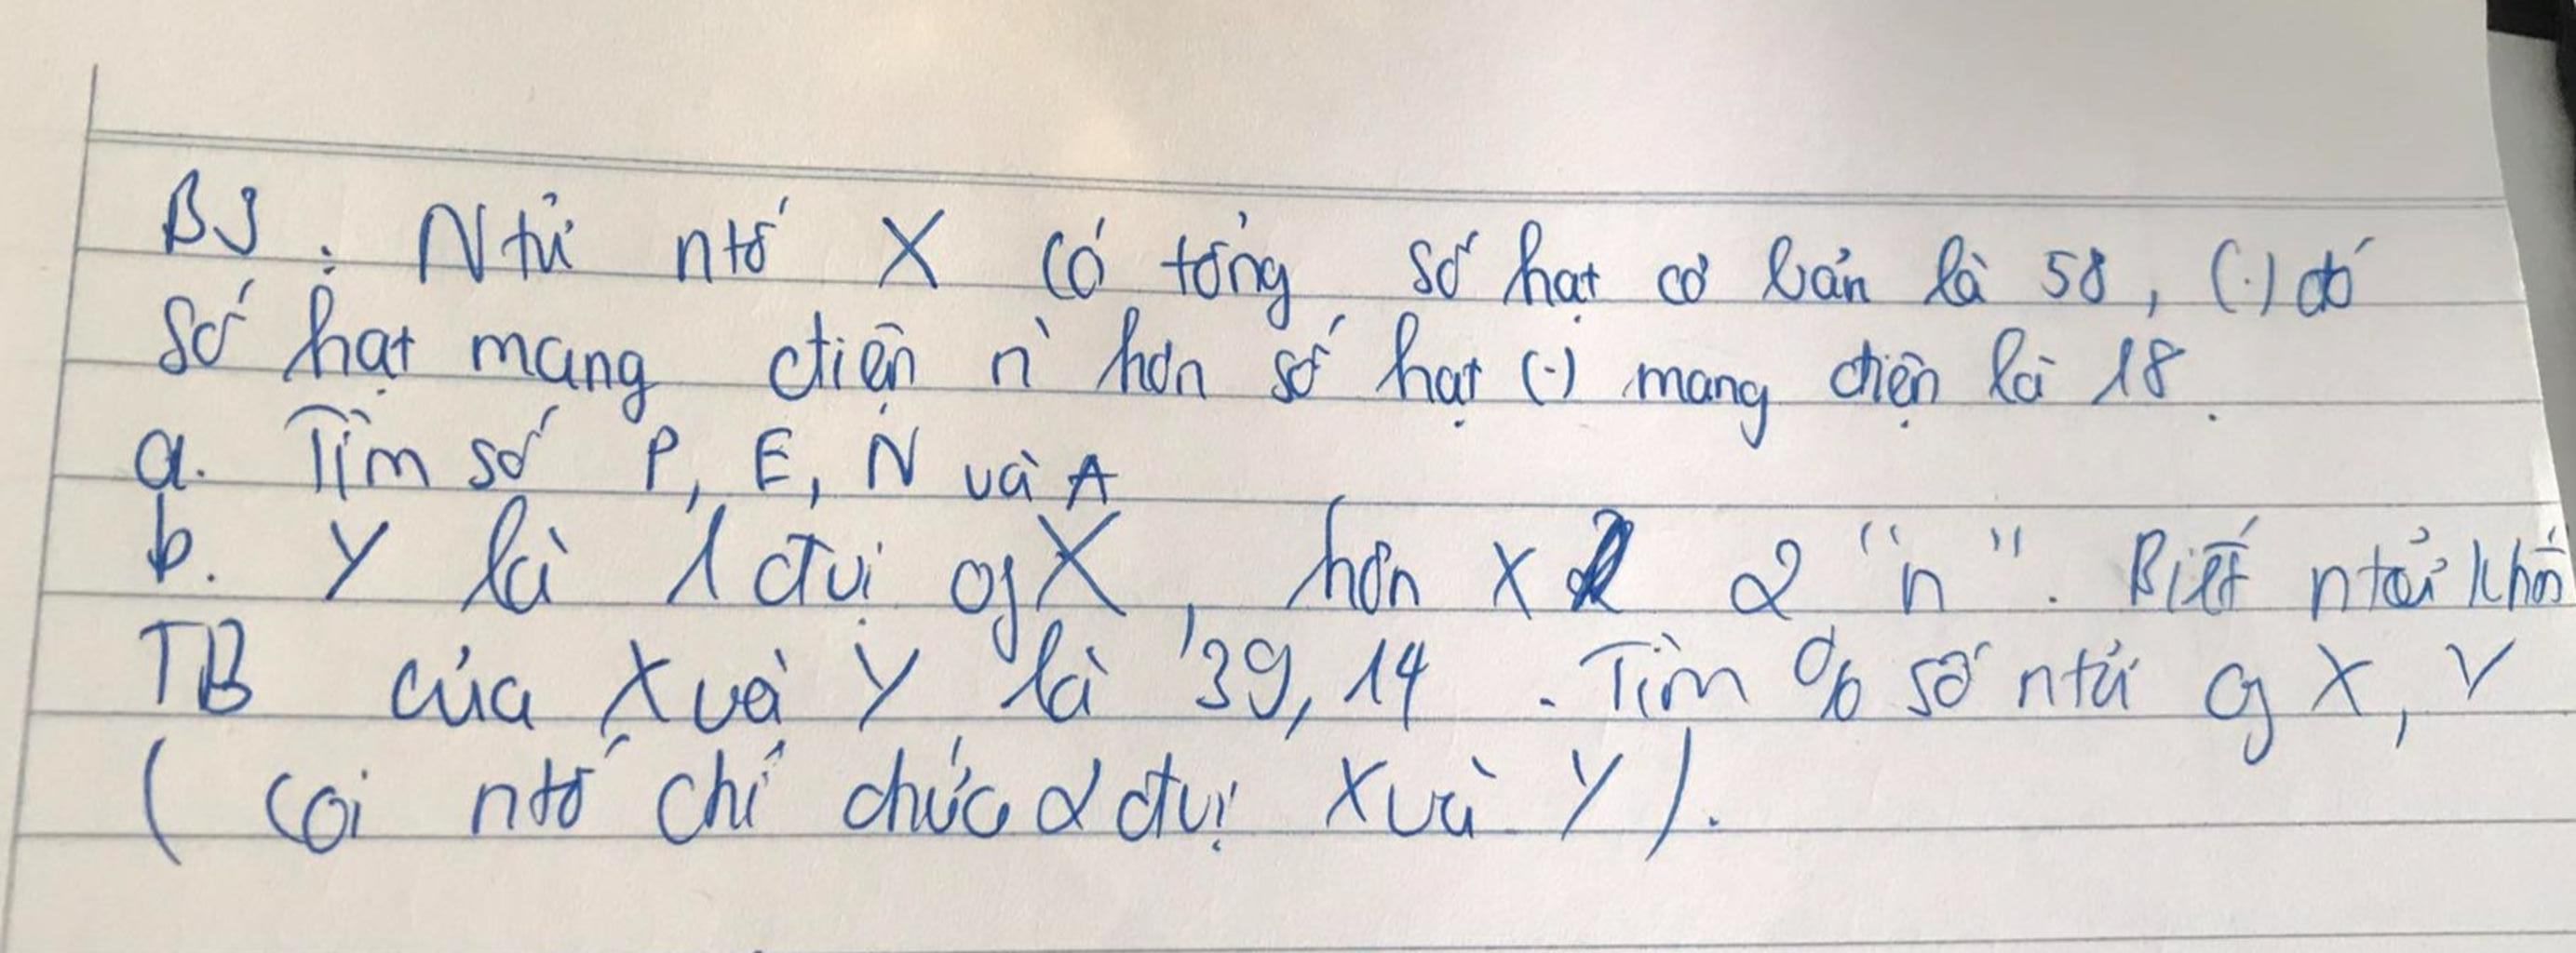 B3 : Ntử ntố X có tổng số hạt cơ bản là 58, (.) đó
số hạt mang điện n` hơn số hạt (-) mang điện là 18.
a. Tìm số P, E, N và A
b. Y là 1 đvị cg X, hơn X 2 "n". Biết ntử khối
TB của X và Y là 39,14. Tìm % số ntử cg X, Y
( coi ntố chỉ chứa 2 đvị X và Y).